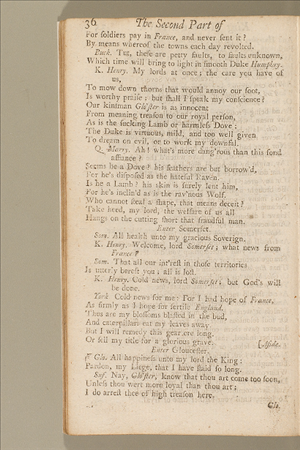 36 The Second Part of
For soldiers pay in France, and never sent it?
By means whereof the towns each day revolted.
Buck. Tut, these are petty faults, to faults unknown,
Which time will bring to light in smooth Duke Humphry.
K. Henry. My lords at once; the care you have of
us,
To mow down thorns that would annoy our foot,
Is worthy praise: but shall I speak my conscience?
Our kinsman Glo'ster is as innocent
From meaning treason to our royal person,
As is the sucking Lamb or harmless Dove:
The Duke is virtuous, mild, and too well given
To dream on evil, or to work my downfal.
Q. Marg. Ah! what's more dang'rous than this fond
affiance?
Seems he a Dove? his feathers are but borrow'd,
For he's disposed as the hateful Raven.
Is he a Lamb? his skin is surely lent him,
For he's inclin'd as is the rav'nous Wolf.
Who cannot steal a shape, that means deceit?
Take heed, my lord, the welfare of us all
Hangs on the cutting short that fraudful man.
Enter Somerset.
Som. All health unto my gracious Soverign.
K. Henry. Welcome, lord Somerset; what news from
France?
Som. That all our int'rest in those territories
Is utterly bereft you; all is lost.
K. Henry. Cold news, lord Somerset; but God's will
be done.
York. Cold news for me: For I had hope of France,
As firmly as I hope for fertile England.
Thus are my blossoms blasted in the bud,
And caterpillars eat my leaves away
But I will remedy this gear ere long,
Or sell my title for a glorious grave. [Aside.
Enter Gloucester.
Glo. All happiness unto my lord the King:
Pardon, my Liege, that I have staid so long.
Suf. Nay, Glo'ster, know that thou art come too soon,
Unless thou wert more loyal than thou art;
I do arrest thee of high treason here.
Glo.